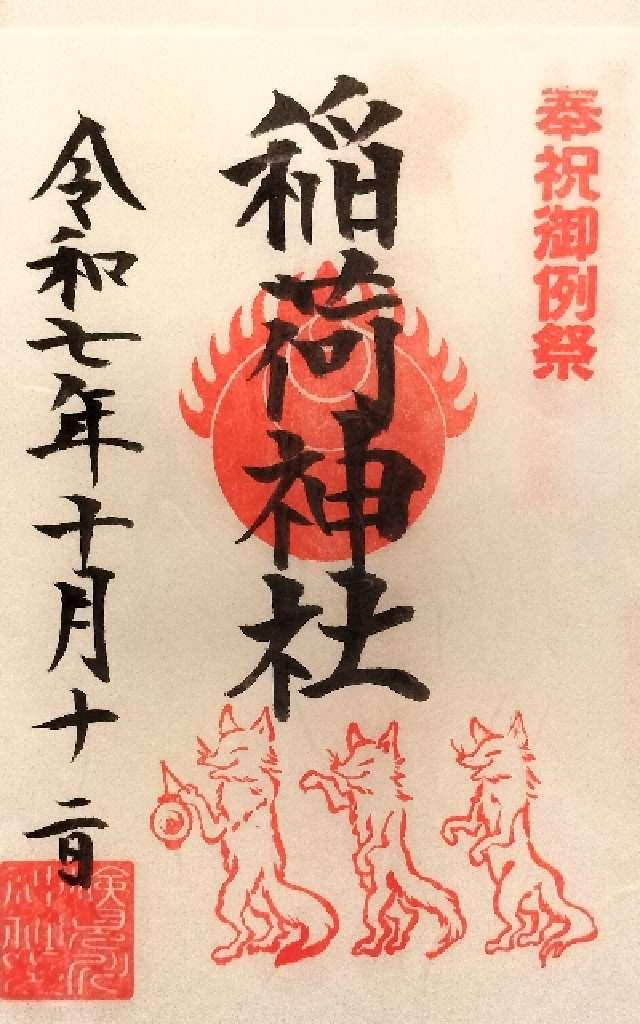 奉祝御例祭
稲荷神社
令和七年十月十二日